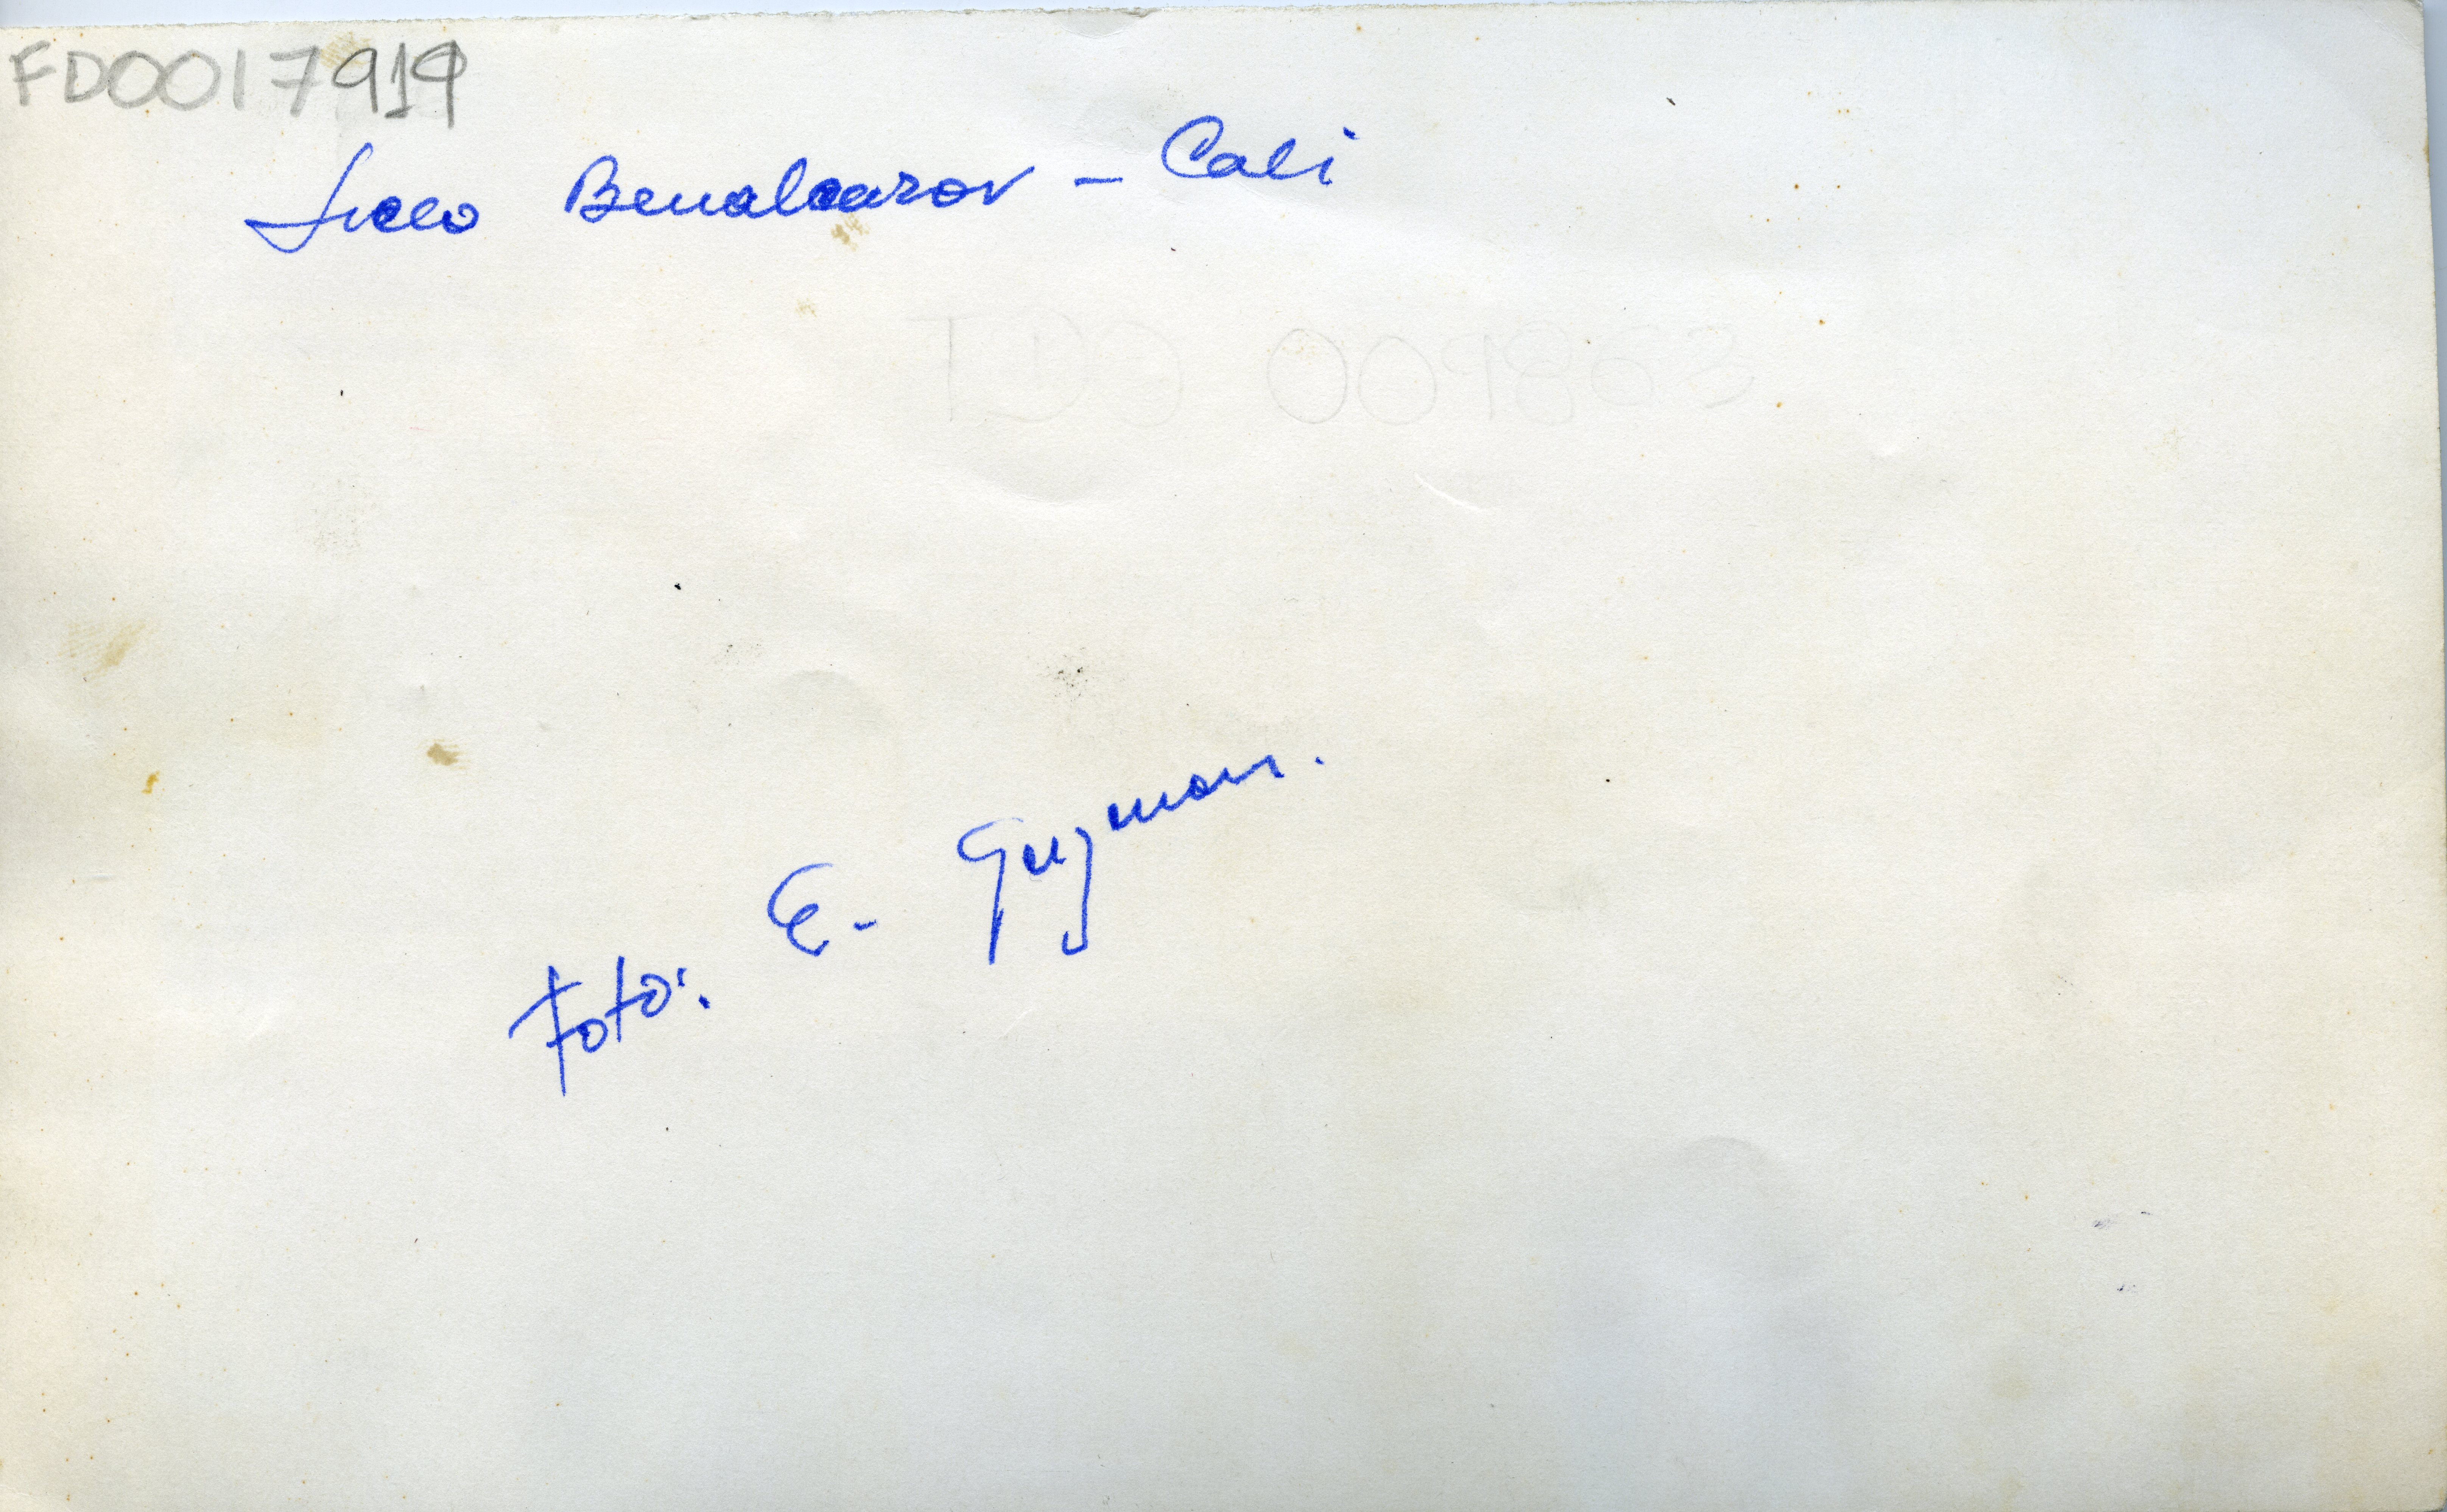 FD0017919
Liceo Benalcazar - Cali
Foto: E. Guzman.